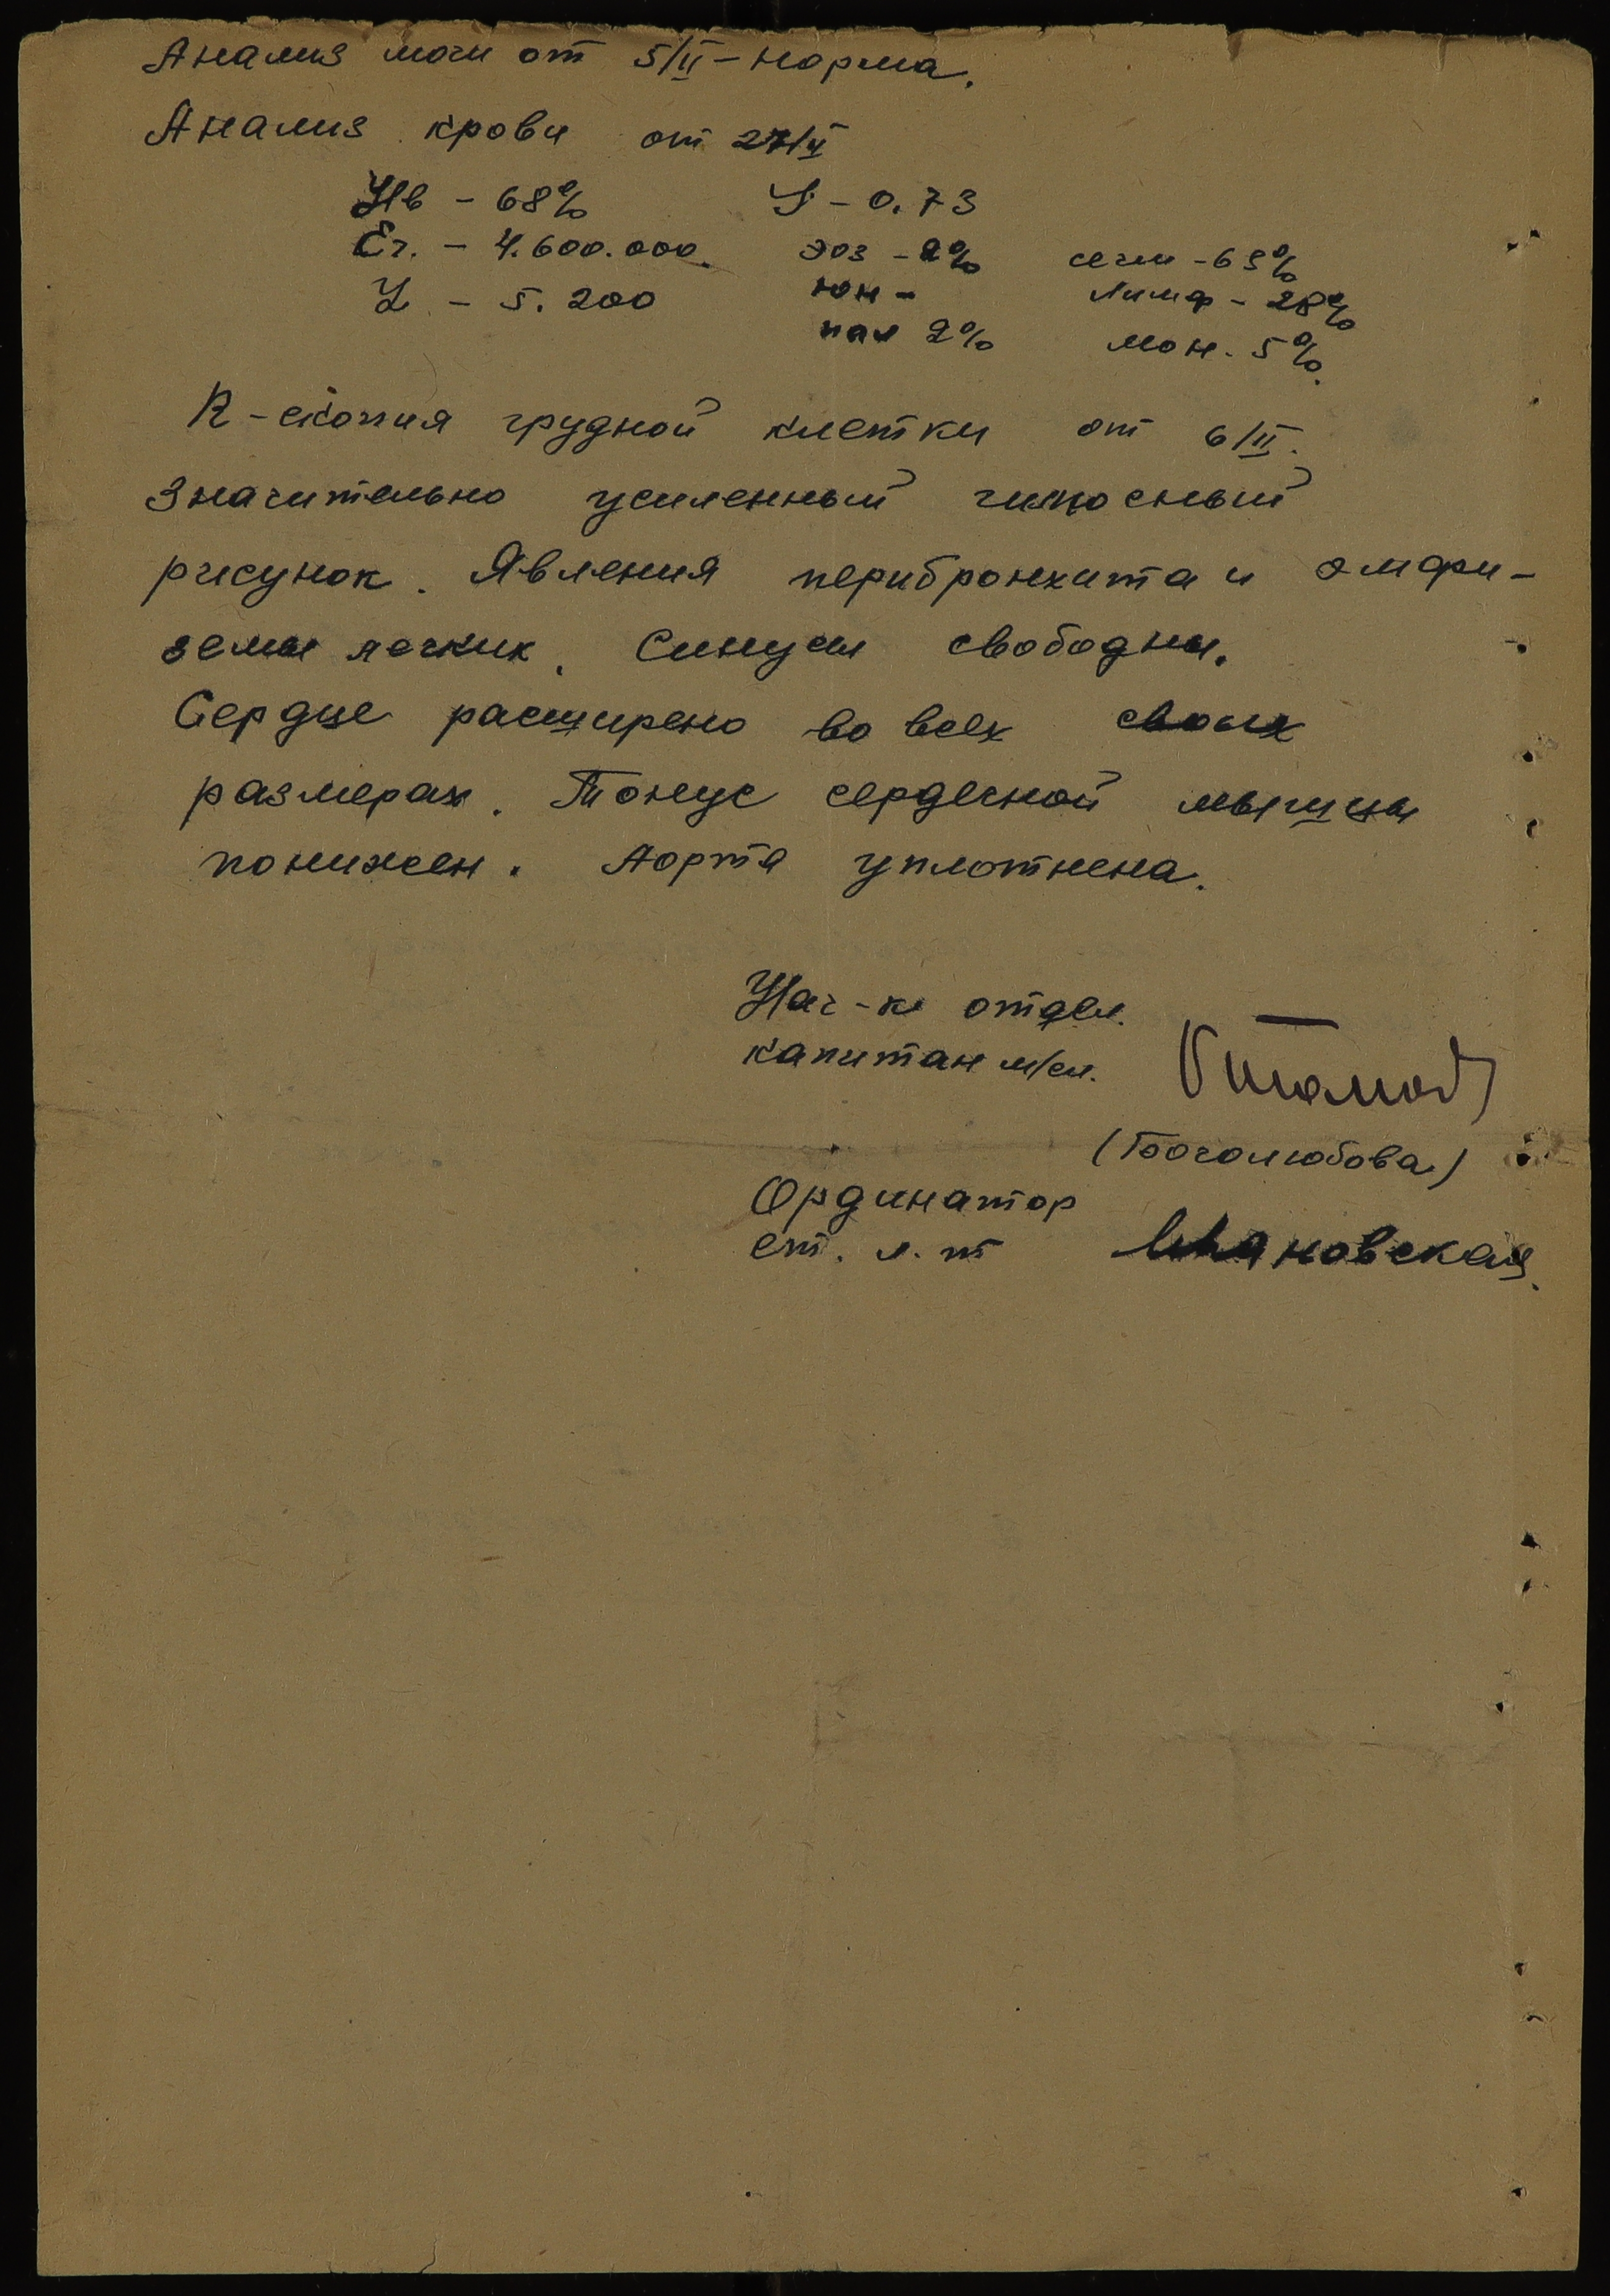 Анализ мочи от 5/II – норма.
Анализ крови от 27/II
Нв – 68% J – 0.73
Er. – 4.600.000. эоз – 2% сегм – 63%
L – 5.200 юн – лимф – 28%
пал 2% мон. 5%.
R-скопия грудной клетки от 6/II.
Значительно усиленный гилюсный
рисунок. Явления перибронхита и эмфи-
земы легких. Синусы свободны.
Сердце расширено во всех своих
размерах. Тонус сердечной мышцы
понижен. Аорта уплотнена.
Нач-к отдел.
капитан м/сл.
(Боголюбова)
Ординатор
ст. л-т